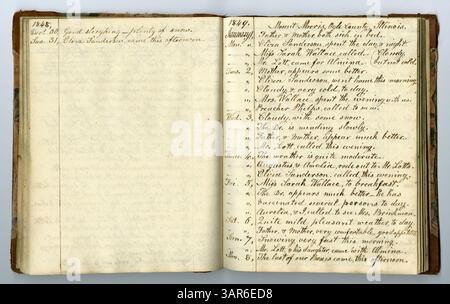 1848.
Dec. 30, Good sleighing — plenty of snow.
Sun. 31, Elvira Sanderson, came this afternoon.
1849. Mount Morris, Ogle County, Illinois.
January 1, Father, & mother both sick in bed.
Mon. " Elvira Sanderson spent the day & night.
" Miss Sarah Wallace called. Cloudy
" Mr. Lott, came for Almina. but not cold.
Tues. 2, Mother, appears some better.
" Elvira Sanderson, went home this morning.
" Cloudy & very cold, to day.
" Mrs. Wallace, spent the evening with us.
" Preacher Phelps, called to
Wed. 3, Cloudy, with some snow.
" The Dr. is mending slowly.
" Father, & mother, appear much better.
" Mr. Lott called this evening.
4, The weather is quite moderate.
" Augustus, & Amelia, rode out to Mr. Lotts.
" Elvira Sanderson, called this evening.
Fri. 5, Miss Sarah Wallace, to breakfast.
" The Dr. appears much better. He has
" vaccinated several persons to day.
" Aurelia, & I, called to see Mrs.
Sat. 6, Quite mild pleasant weather, to day.
" Father, & Mother, very comfortable, good
7, very fast this morning.
" Mr. Lott, & his daughter, came with Almina.
8, The last of our this afternoon.
alamy
Image ID: 3AR6ED8
www.alamy.com